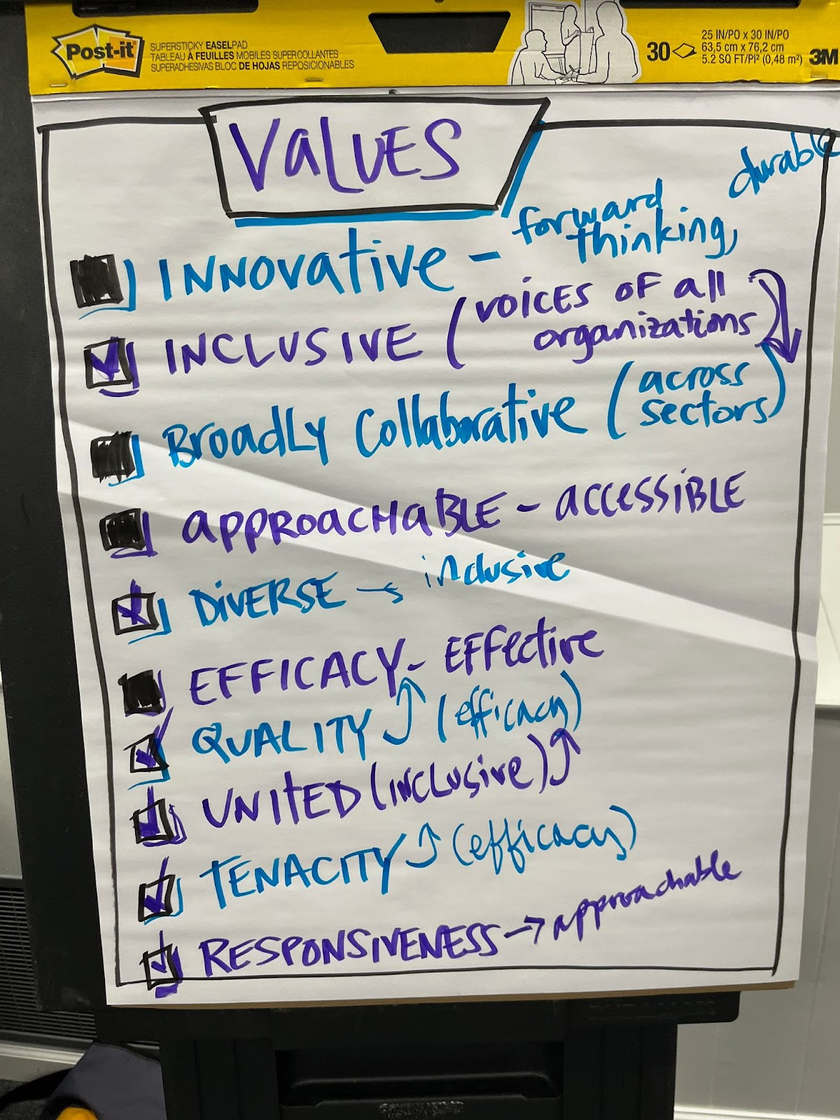 Post-it
SUPERSTICKY EASELPAD
TABLEAU À FEUILLES MOBILES SUPERCOLLANTES
SUPERADHESIVAS BLOC DE HOJAS REPOSICIONABLES
30
25 IN/PO x 30 IN/PO
63,5 cm x 76,2 cm
5.2 SQ FT/PI² (0,48 m²)
3M
VALUES
INNOVATIVE - forward thinking, durable
INCLUSIVE (VOICES OF all organizations)
BROADLY Collaborative (across sectors)
APPROACHABLE - ACCESSIBLE
DIVERSE → inclusive
EFFICACY - EFFective
QUALITY ↑ (efficacy)
UNITED (INCLUSIVE) ↑
TENACITY ↑ (efficacy)
RESPONSIVENESS → approachable